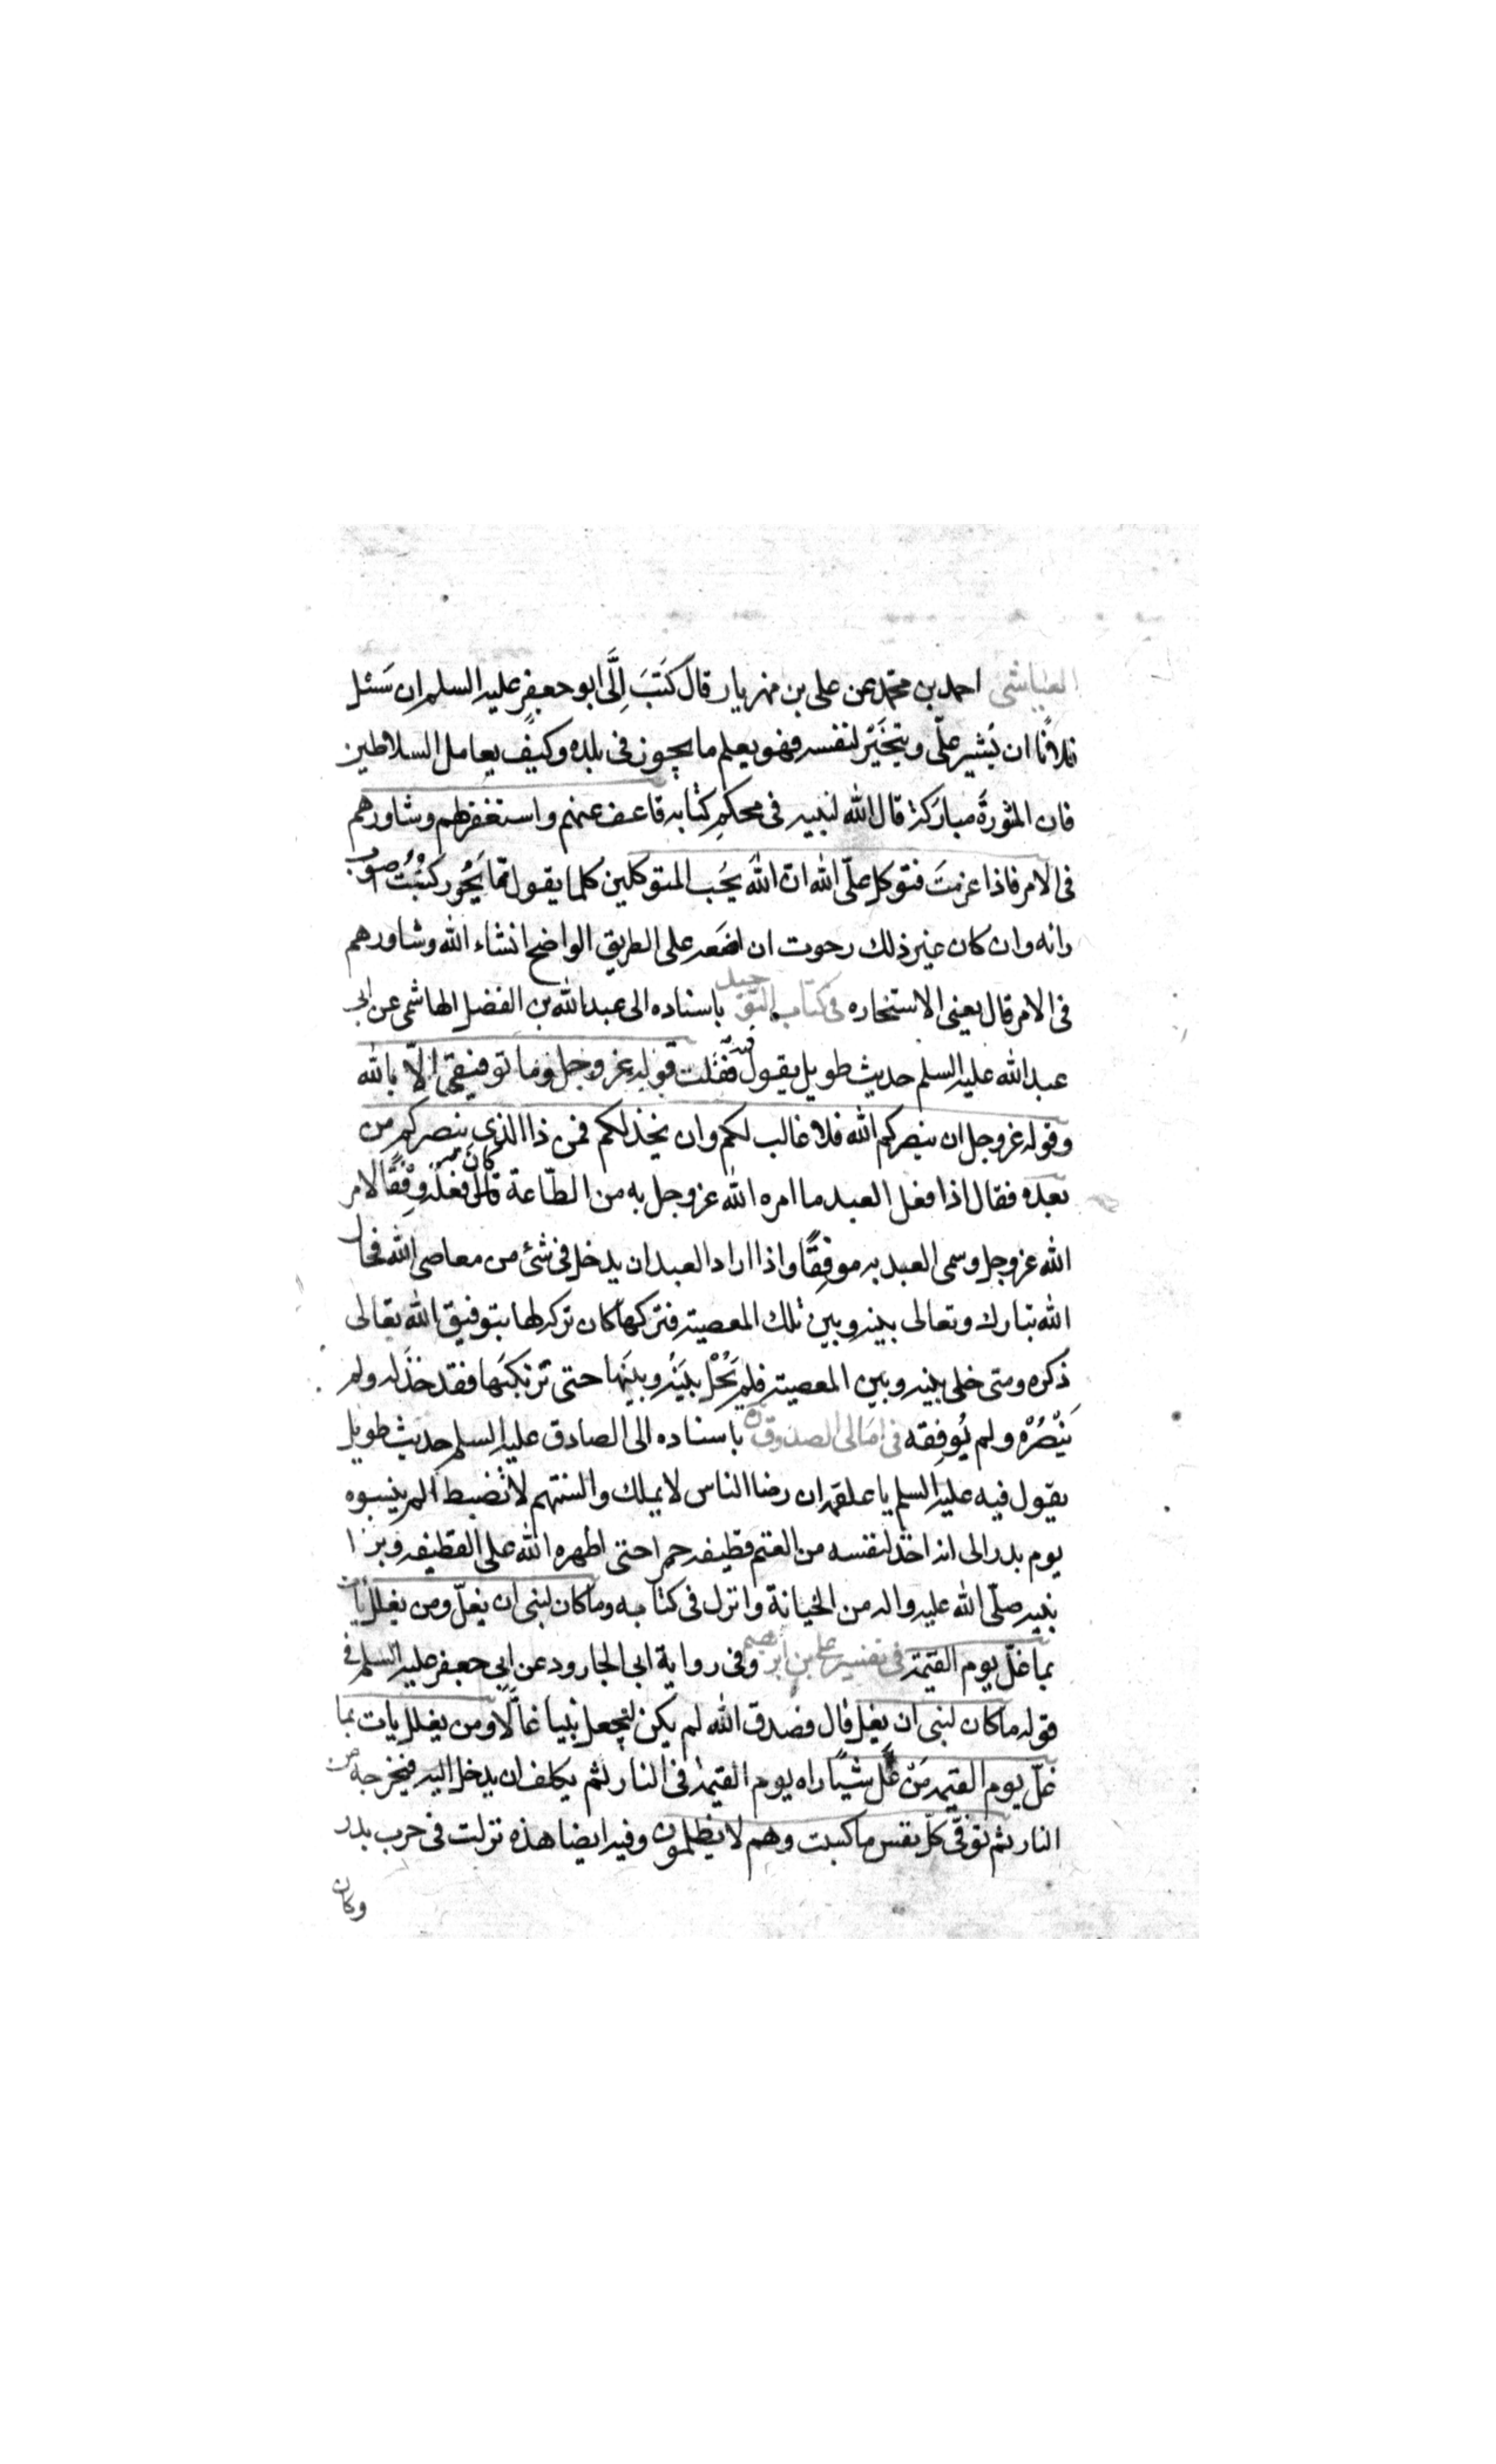 العياشى احمد بن محمّد عن على بن مهزيار قال كَتَبَ اِلَىَّ ابو جعفرٍ عليه السلم ان سَئل
فلانًا ان يُشير علّى ويتخيّر لنفسه فهو يعلم ما يجوز فى بلده وكيف يعامل السلاطين
فان المشورةَ مباركة قال الله لنبيه فى محكم كتابه فاعف عنهم واستغفر لهم وشاورهم
فى الامر فاذا عزمتَ فتوكل علّى الله انّ اللهَ يحُب المتوكلين كلما يقول ممّا يَجُوز كتبْتُ اصوب
رائه وان كان غير ذلك رجوت ان اضعه على الطريق الواضح انشاء الله وشاورهم
فى الامر قال يعنى الاستخاره فى كتاب التوحيد باسناده الى عبد الله بن الفضل الهاشمى عن ابى
عبد الله عليه السلم حديث طويل يقول فيه فقلت قوله عز وجل وما توفيقى الّا بالله
وقوله عز وجل ان ينصركم الله فلا غالب لكم وان يخذلكم فمن ذا الذى ينصركم من
بعده فقال اذا فعل العبد ما امره الله عز وجل به من الطّاعة كان فعله وِفْقًا لامر
الله عز وجل وسمى العبد به موفِقًا واذا اراد العبد ان يدخل فى شئ من معاصى الله فحال
الله تبارك وتعالى بينه وبين تلك المعصية فتركها كان تركه لها بتوفيق الله تعالى
ذكره ومتى خلى بينه وبين المعصية فلم يَحُلْ بينَهُ وبينَها حتى يَرْتكبَها فقد خذله ولم
يَنْصُرْهُ ولم يُوفقه فى امالى الصدوق ره باسناده الى الصادق عليه السلم حديث طويل
يقول فيه عليه السلم يا علقمه ان رضا الناس لا يملك والسنتهم لا تضبط الم ينسبوه
يوم بدر الى انه اخذ لنفسه من الغنم قطيفه حمرا حتى اظهره الله على القطيفه وبرا
نبيه صلّى الله عليه واله من الخيانة وانزل فى كتابه وما كان لنبى ان يغلّ ومن يغلل يات
بما غلّ يوم القيمة فى تفسير على بن ابرهيم وفى رواية ابى الجارود عن ابى جعفر عليه السلم فى
قوله ما كان لنبى ان يغل قال فصدق الله لم يكن ليجعل نبيا غالًّا ومن يغلل يات بما
غلّ يوم القيمه مَن غَلّ شيئًا راه يوم القيمة فى النار ثم يكلف ان يدخل اليه فيخرجه من
النار ثم توفّى كلّ نفس ما كسبت وهم لا يظلمون وفيه ايضا هذه نزلت فى حرب بدر
وكان